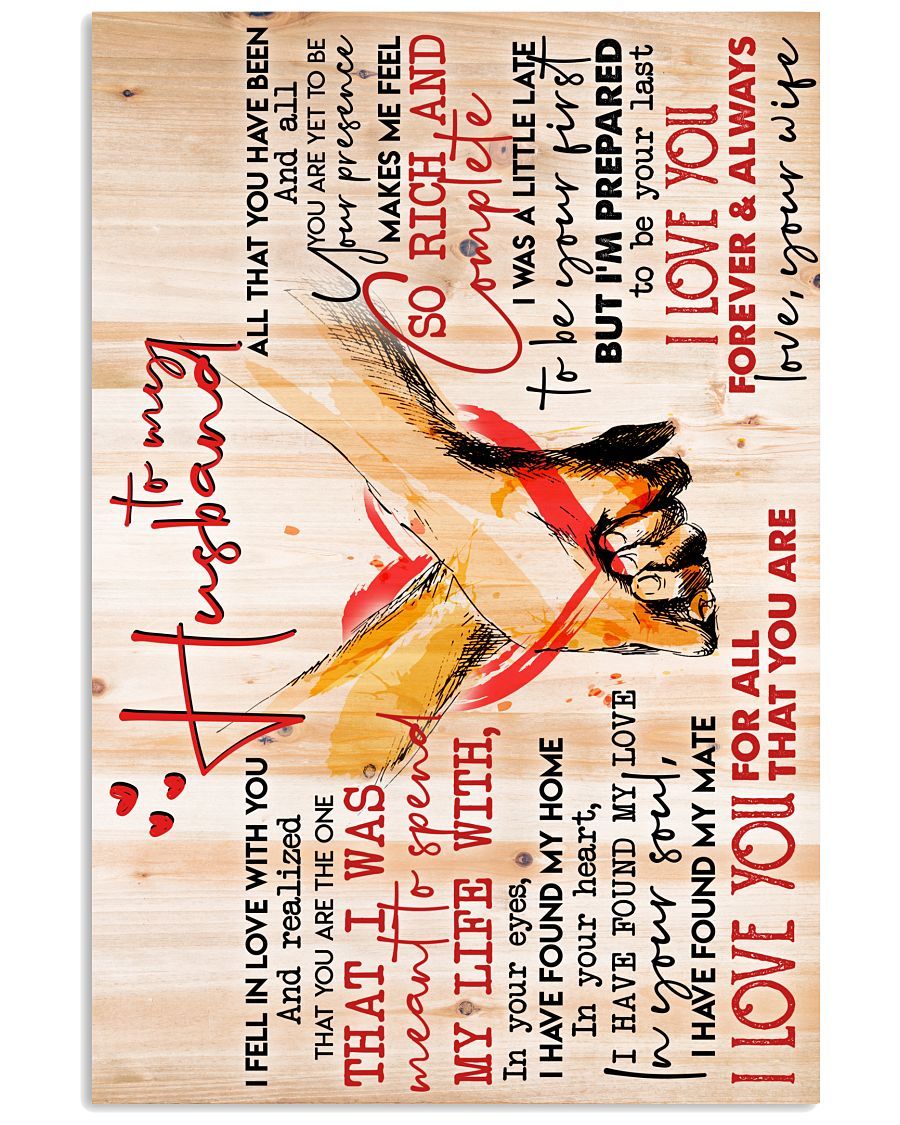 to my
Husband
I FELL IN LOVE WITH YOU
And realized
THAT YOU ARE THE ONE
THAT I WAS
meant to spend
MY LIFE WITH,
In your eyes,
I HAVE FOUND MY HOME
In your heart,
I HAVE FOUND MY LOVE
In your soul,
I HAVE FOUND MY MATE
I LOVE YOU FOR ALL
THAT YOU ARE
ALL THAT YOU HAVE BEEN
And all
YOU ARE YET TO BE
Your presence
MAKES ME FEEL
SO RICH AND
Complete
I WAS A LITTLE LATE
to be your first
BUT I'M PREPARED
to be your last
I LOVE YOU
FOREVER & ALWAYS
love, your wife